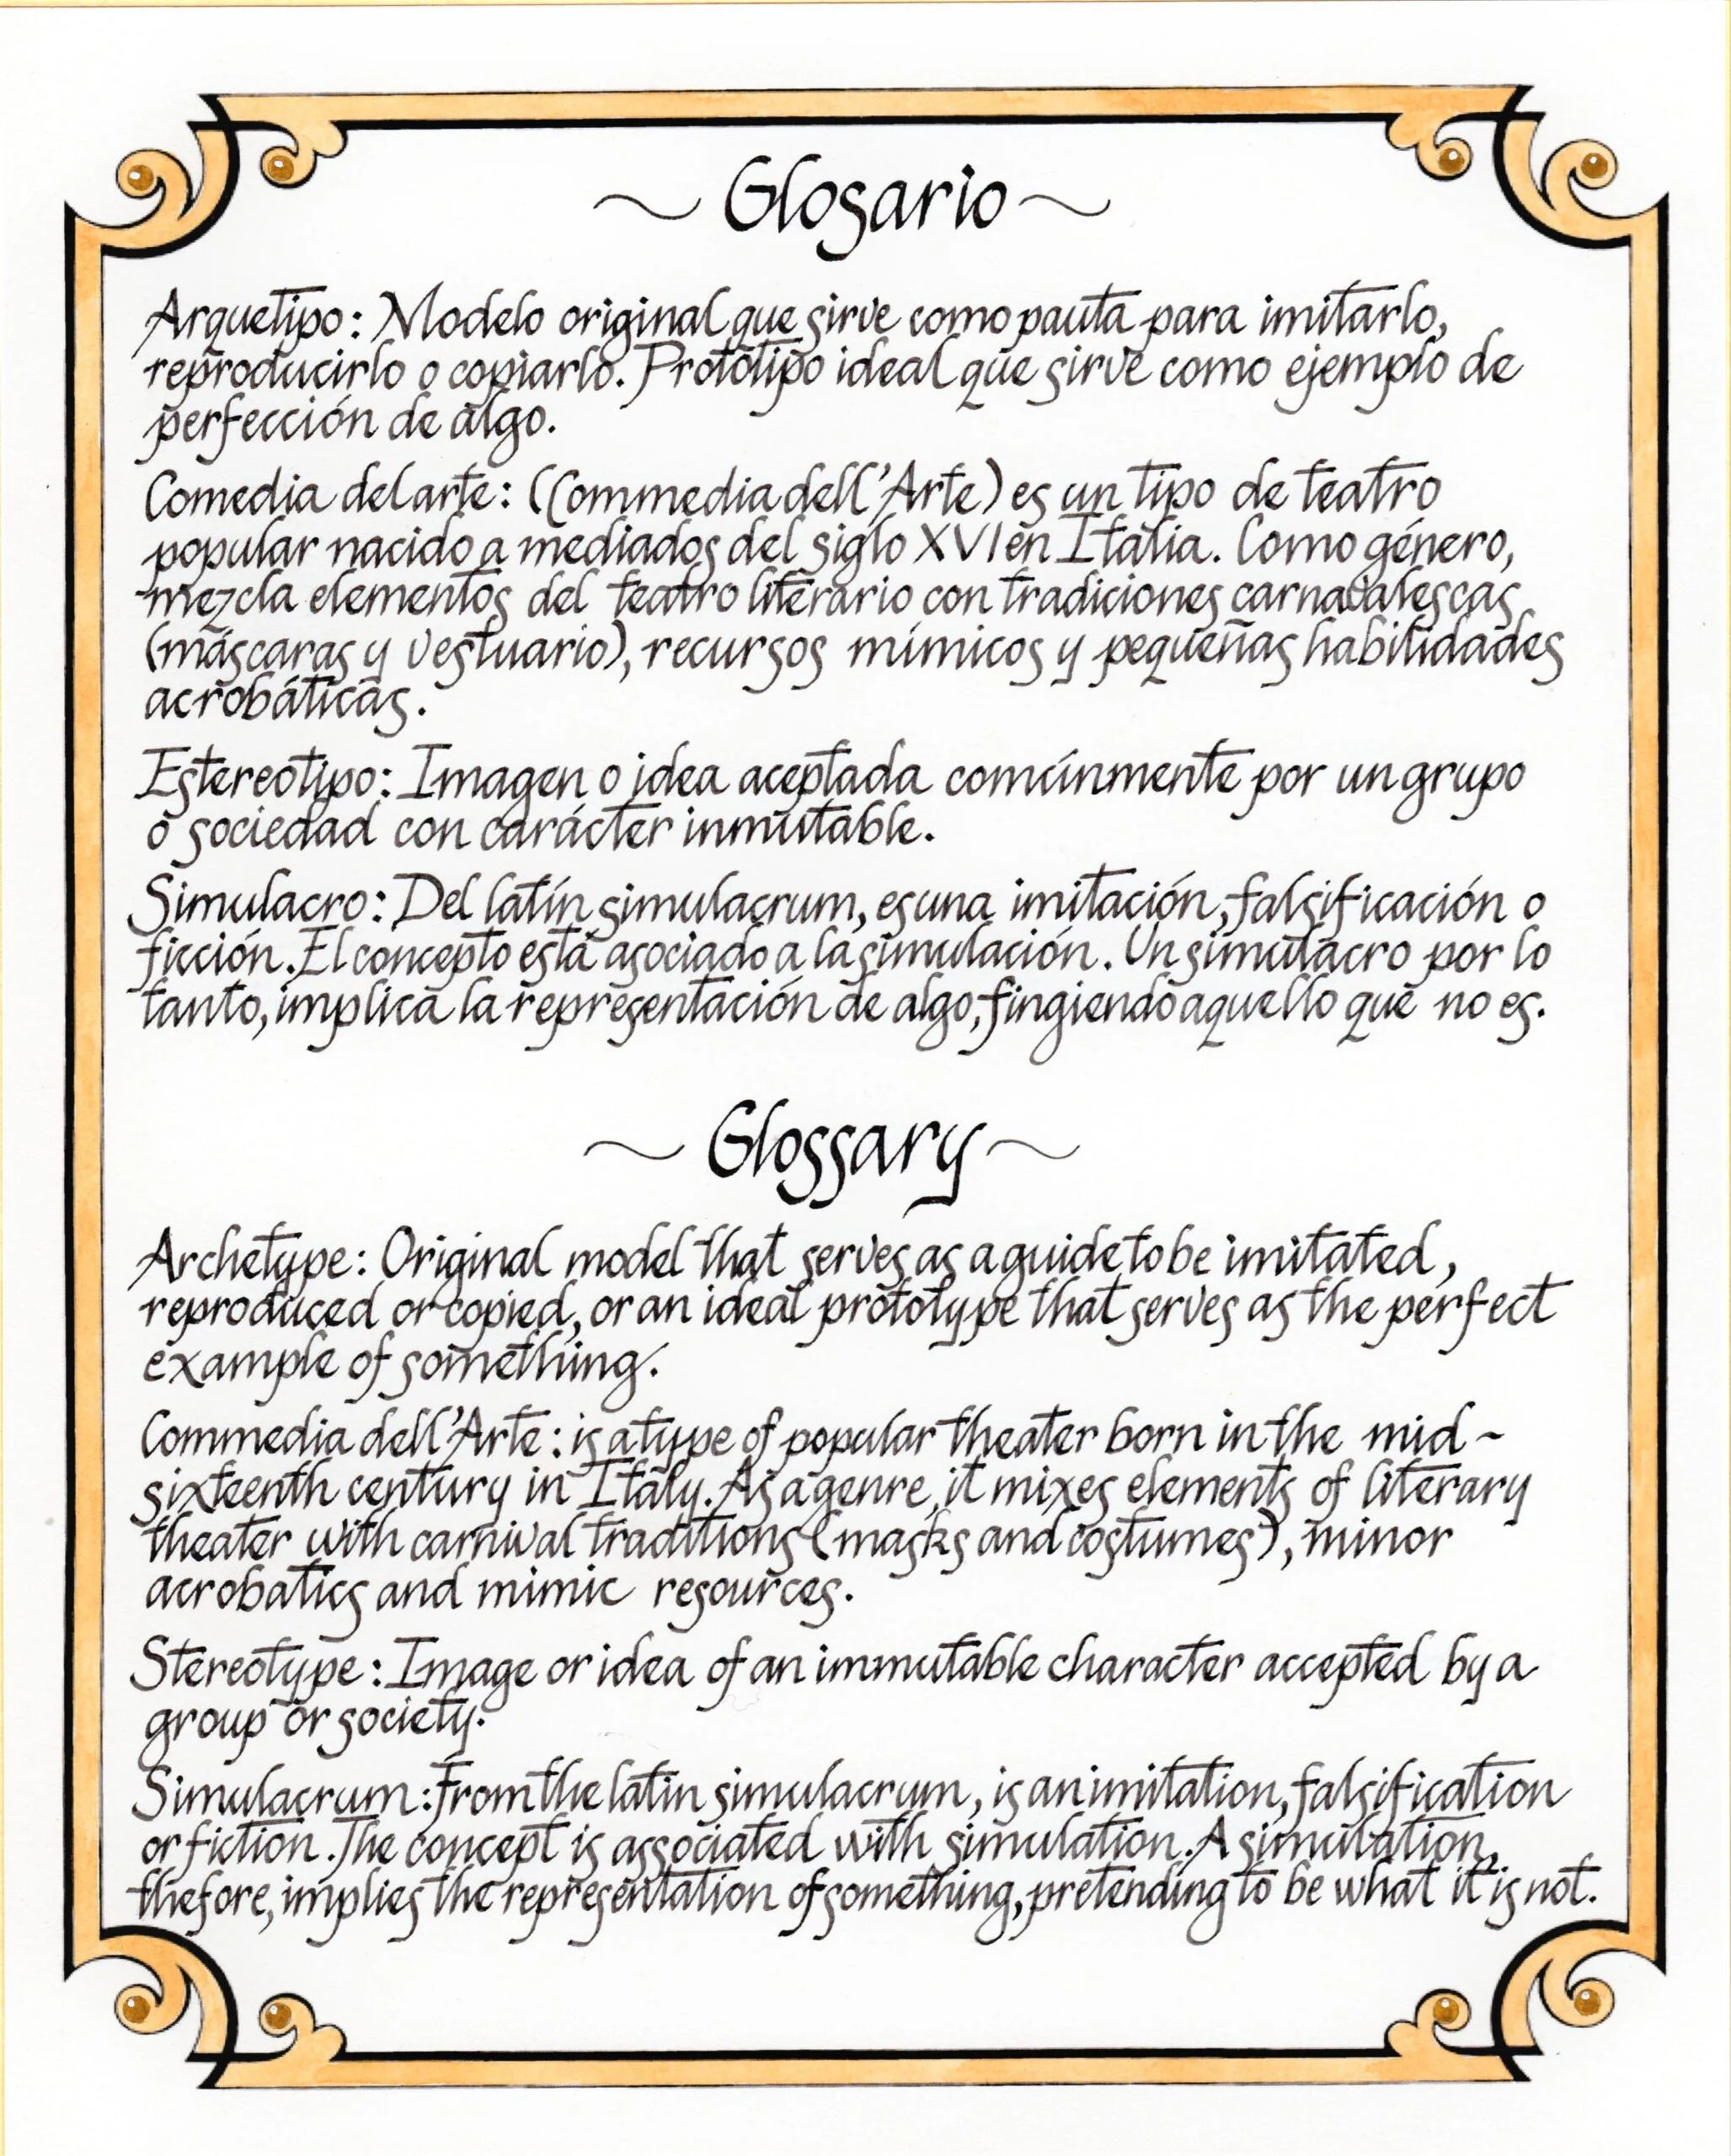 ~ Glosario ~
Arquetipo: Modelo original que sirve como pauta para imitarlo,
reproducirlo o copiarlo. Prototipo ideal que sirve como ejemplo de
perfección de algo.
Comedia del arte: (Commedia dell'Arte) es un tipo de teatro
popular nacido a mediados del siglo XVI en Italia. Como género,
mezcla elementos del teatro literario con tradiciones carnavalescas
(máscaras y vestuario), recursos mímicos y pequeñas habilidades
acrobáticas.
Estereotipo: Imagen o idea aceptada comúnmente por un grupo
o sociedad con carácter inmutable.
Simulacro: Del latín simulacrum, es una imitación, falsificación o
ficción. El concepto está asociado a la simulación. Un simulacro por lo
tanto, implica la representación de algo, fingiendo aquello que no es.
~ Glossary ~
Archetype: Original model that serves as a guide to be imitated,
reproduced or copied, or an ideal prototype that serves as the perfect
example of something.
Commedia dell'Arte: is a type of popular theater born in the mid-
sixteenth century in Italy. As a genre, it mixes elements of literary
theater with carnival traditions (masks and costumes), minor
acrobatics and mimic resources.
Stereotype: Image or idea of an immutable character accepted by a
group or society.
Simulacrum: From the latin simulacrum, is an imitation, falsification
or fiction. The concept is associated with simulation. A simulation,
thefore, implies the representation of something, pretending to be what it is not.